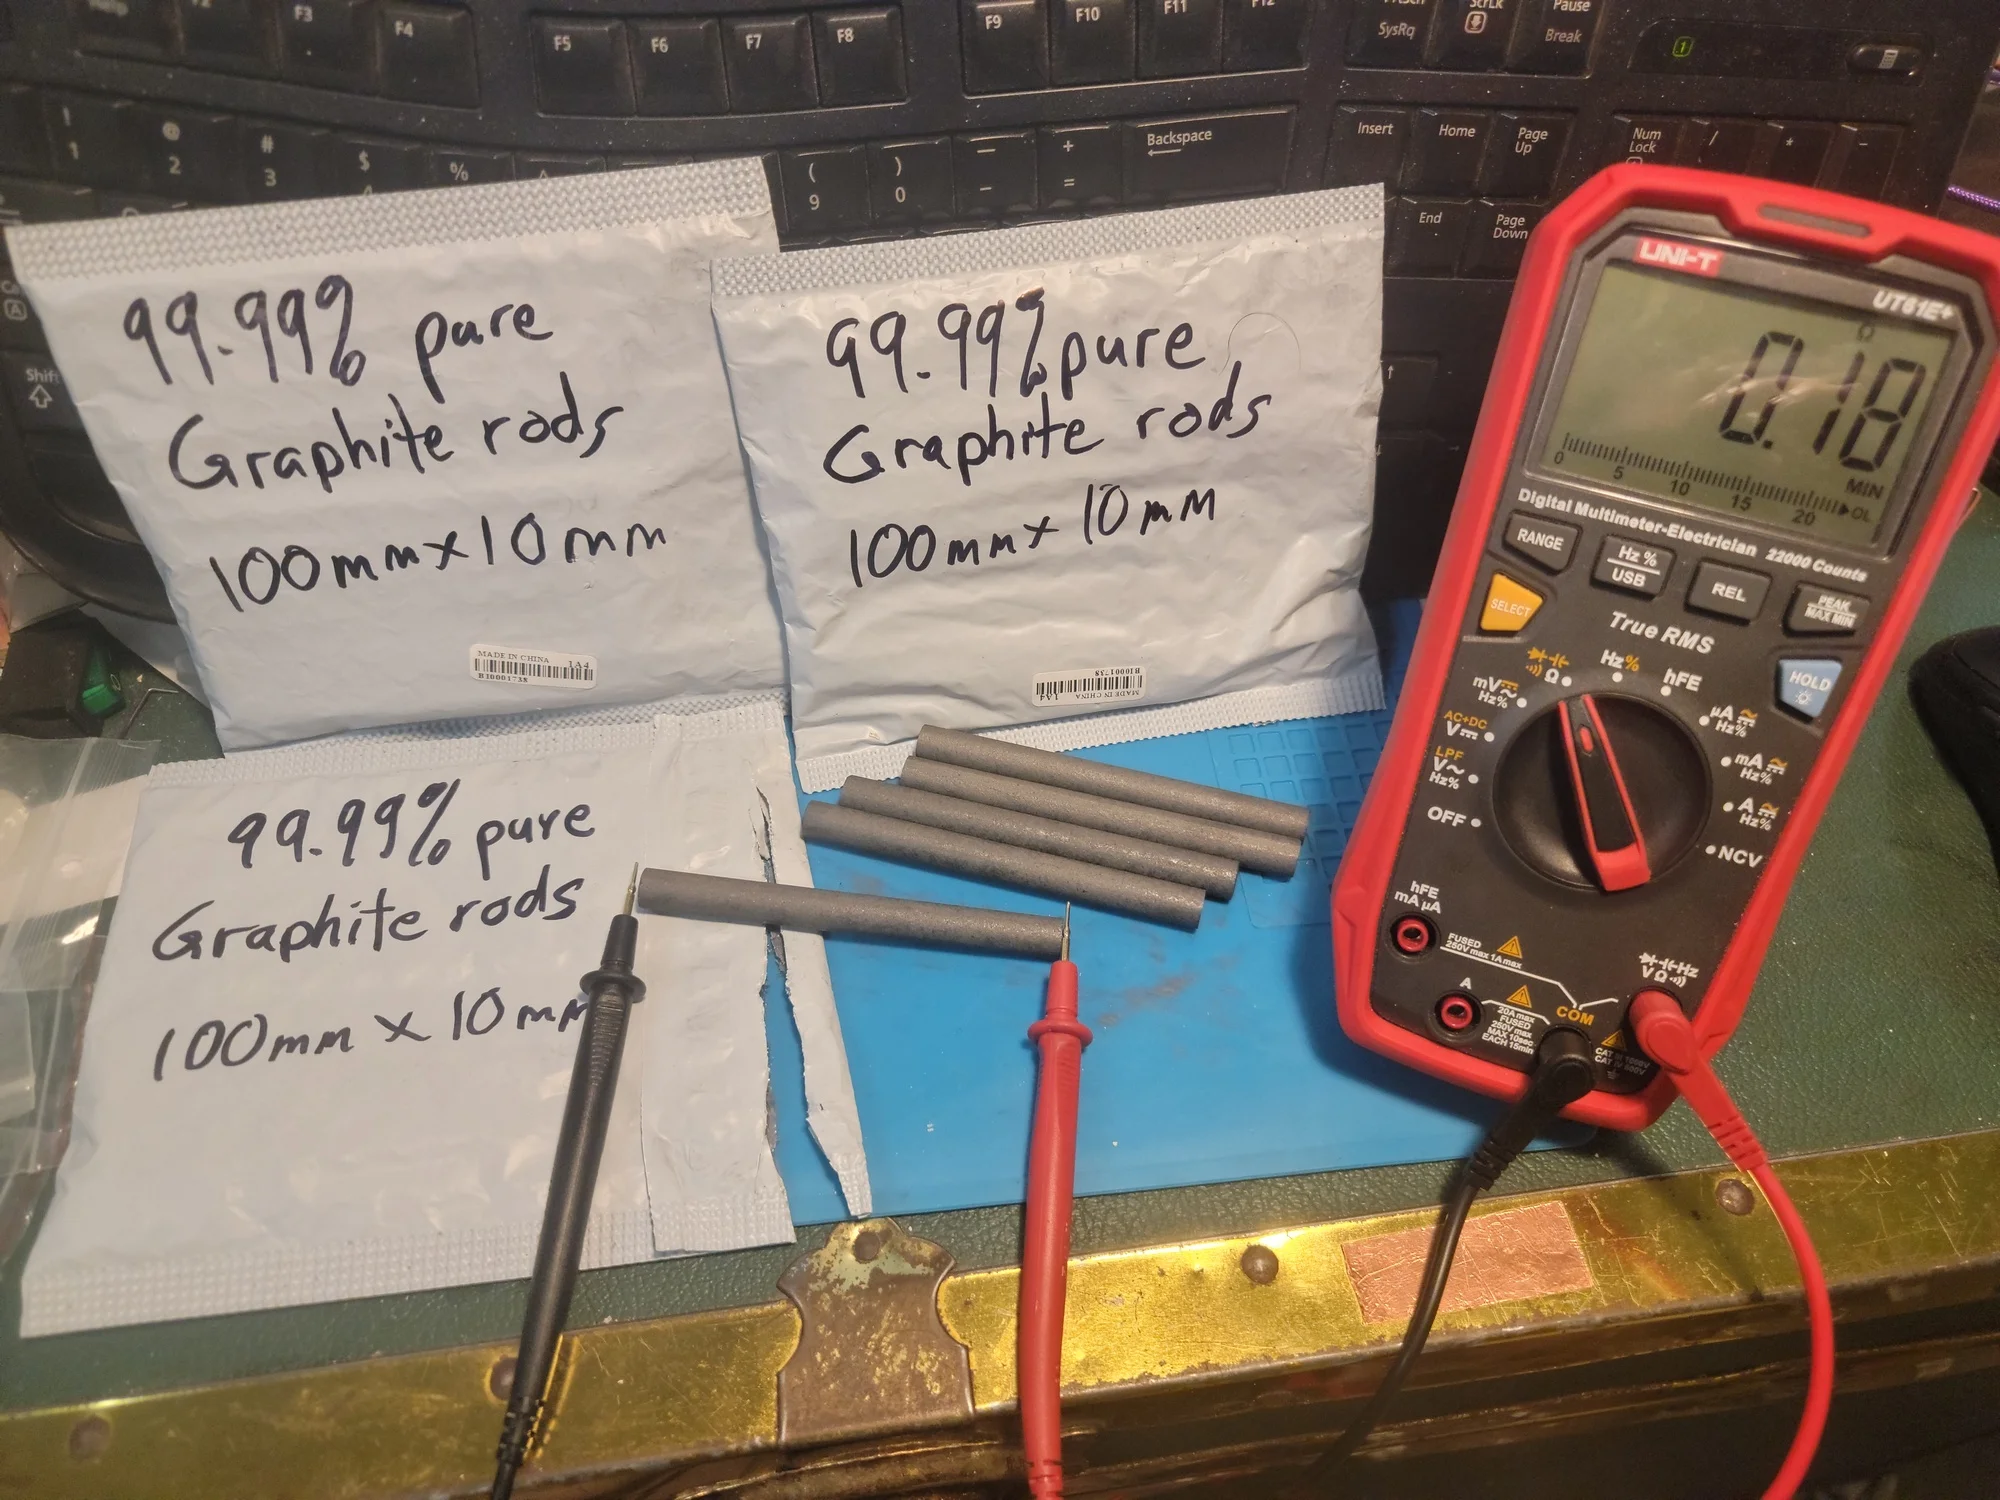 F3
F4
F5
F6
F7
F8
F9
F10
F11
F12
SysRq
ScrLk
Pause
Break
1
!
1
@
2
#
3
$
%
(
9
)
0
—
-
+
=
Backspace
Insert
Home
Page
Up
Num
Lock
/
*
-
End
Page
Down
Shift
A
99.99% pure
Graphite rods
100mm x 10mm
MADE IN CHINA 1A4
BI0001738
99.99% pure
Graphite rods
100mm x 10mm
MADE IN CHINA 1A4
BI0001738
99.99% pure
Graphite rods
100mm x 10mm
UNI-T
UT61E+
Ω
0.18
0 5 10 15 20 OL
MIN
Digital Multimeter-Electrician 22000 Counts
RANGE
Hz %
USB
REL
PEAK
MAX MIN
SELECT
True RMS
HOLD
Ω
Hz%
hFE
mV
Hz%
µA
Hz%
AC+DC
V
mA
Hz%
LPF
V~
Hz%
A
Hz%
OFF
NCV
hFE
mA µA
FUSED
250V max 1A max
Hz
VΩ
A
20A max
FUSED
250V max
MAX 10sec
EACH 15min
COM